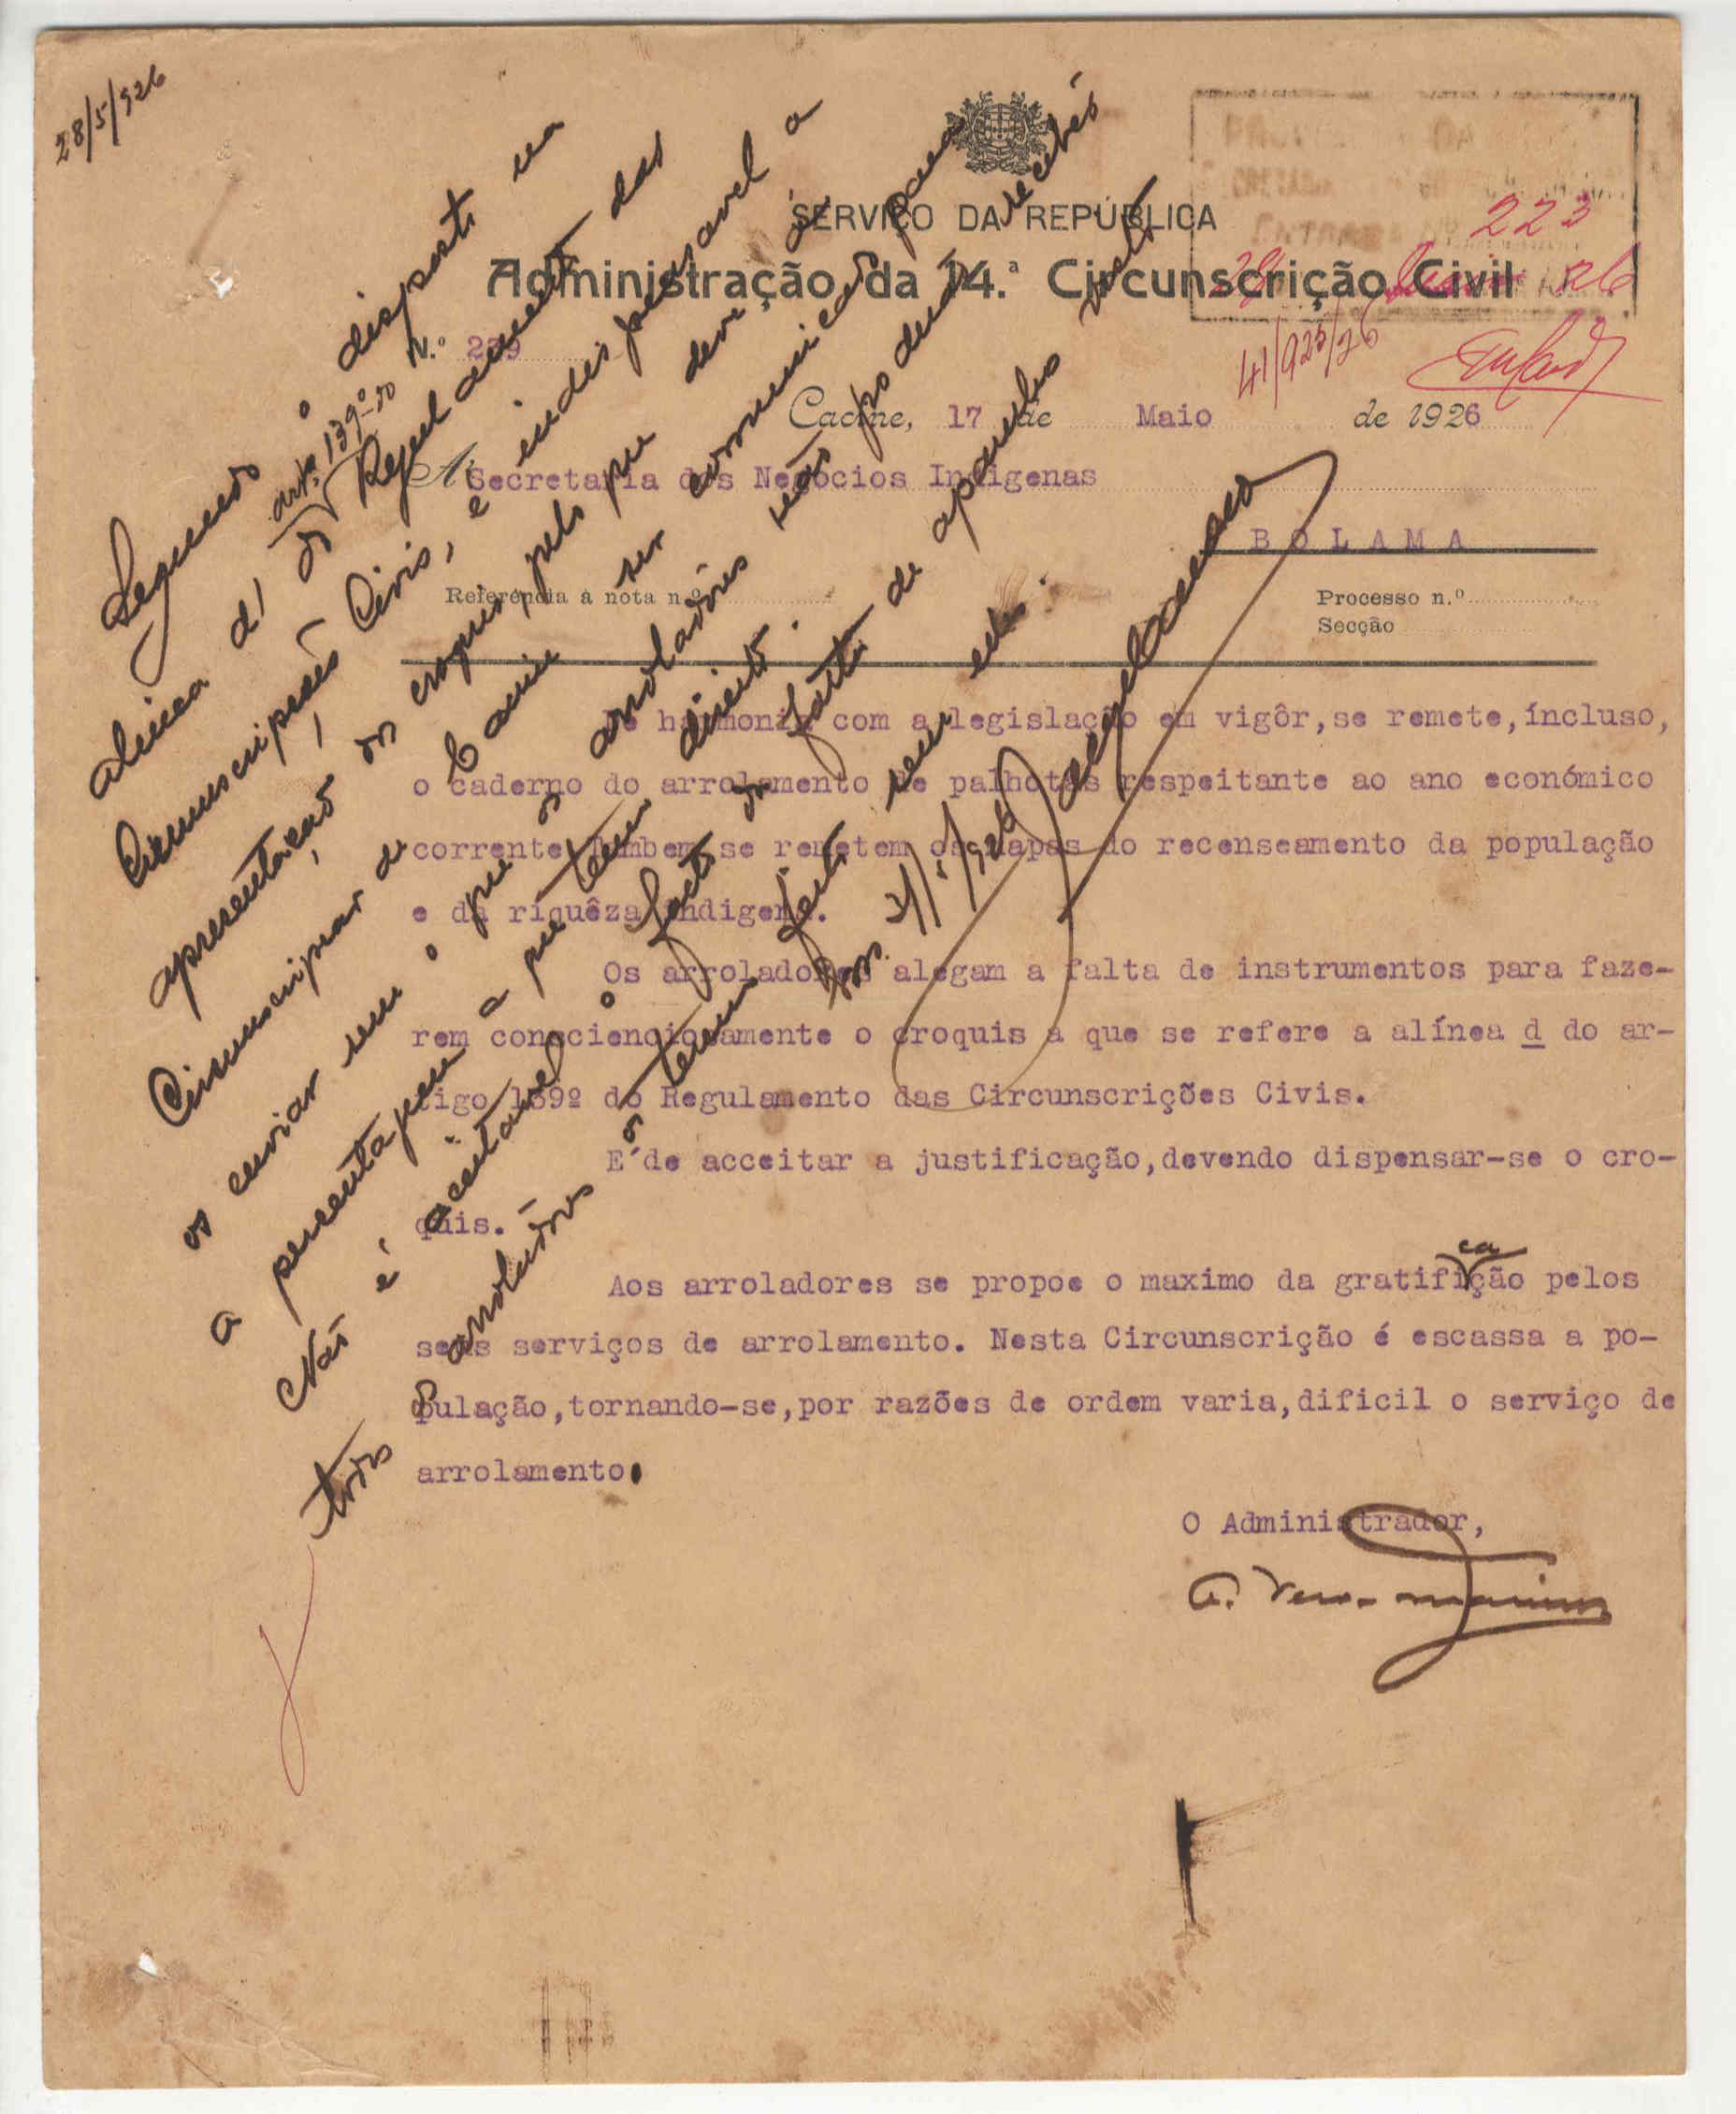 28/5/926
SERVIÇO DA REPÚBLICA
Administração da 14.ª Circunscrição Civil
223
41/925/26
N.º 239
Cacine, 17 de Maio de 1926
Á Secretaria dos Negócios Indigenas
B O L A M A
Referência à nota n.º
Processo n.º
Secção
De harmonia com a legislação em vigôr,se remete,íncluso,
o caderno do arrolamento de palhotas respeitante ao ano económico
corrente. Tambem se remetem os mapas do recenseamento da população
e da riquêza indigena.
Os arroladores alegam a falta de instrumentos para faze-
rem conscienciosamente o croquis a que se refere a alínea d do ar-
tigo 139º do Regulamento das Circunscrições Civis.
E´de acceitar a justificação,devendo dispensar-se o cro-
quis.
Aos arroladores se propoe o maximo da gratificação pelos
seus serviços de arrolamento. Nesta Circunscrição é escassa a po-
pulação,tornando-se,por razões de ordem varia,dificil o serviço de
arrolamento.
O Administrador,
Segundo o disposto na
alinea d) do artº 139º do Regulamento das
Circunscripções Civis, é indispensavel a
apresentação dos croquis, pelo que deve á
Circunscripção de Cacine ser comunicado para
os enviar sem o que os arroladores não poderão receber
a percentagem a que teem direito.
Não é aceitavel o facto da falta de aparelhos visto
todos os arroladores o terem feito sem eles.